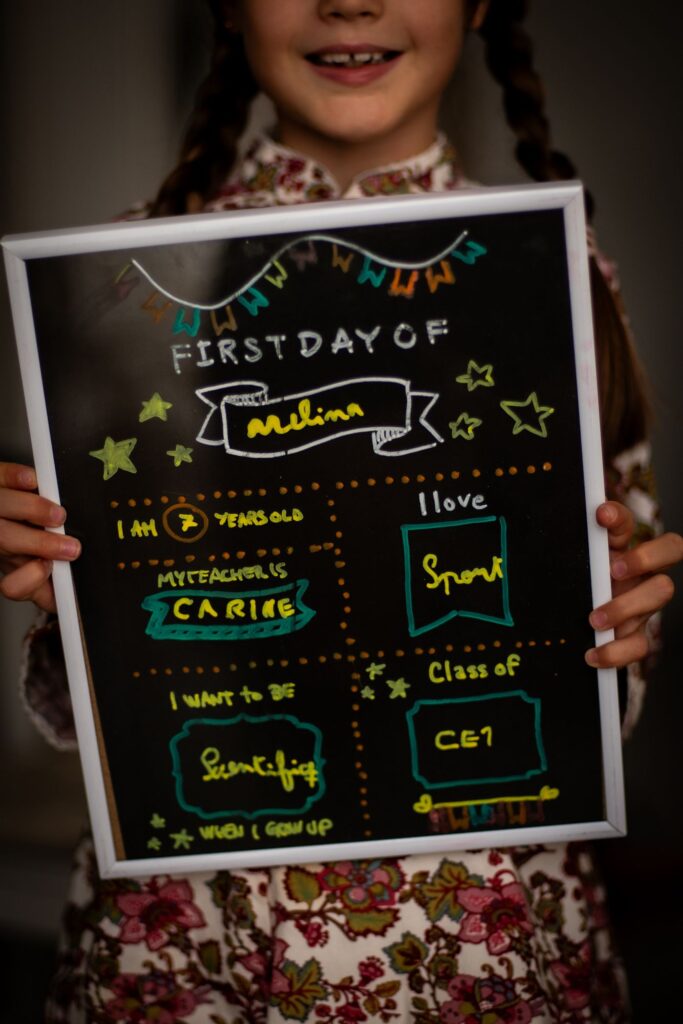 FIRST DAY OF
Melina
I AM 7 YEARS OLD
I love
Sport
MY TEACHER IS
CARINE
I WANT to BE
Scientifiq
WHEN I GROW UP
Class of
CE1